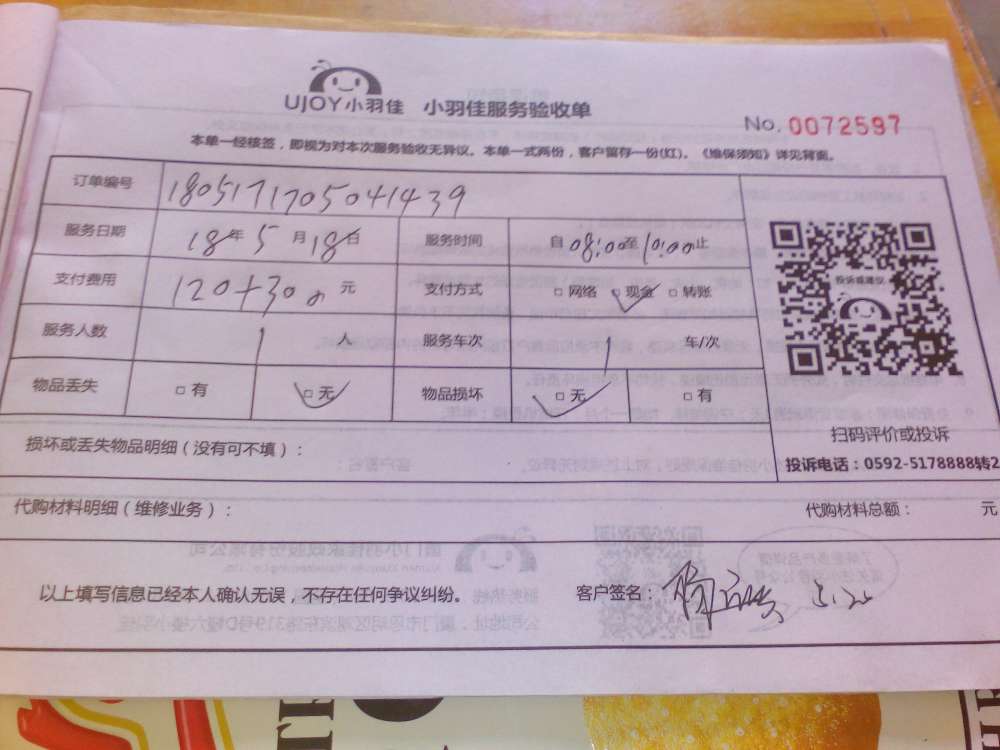 UJOY小羽佳 小羽佳服务验收单
No. 0072597
本单一经核签，即视为对本次服务验收无异议。本单一式两份，客户留存一份(红)。《维保须知》详见背面。
订单编号 1805171705041439
服务日期 18年5月18日 服务时间 自08:00至10:00止
支付费用 120+300 元 支付方式 □网络 □现金 □转账
服务人数 1 人 服务车次 1 车/次
物品丢失 □有 □无 物品损坏 □无 □有
投诉或建议
扫码评价或投诉
损坏或丢失物品明细（没有可不填）：
投诉电话：0592-5178888转2
代购材料明细（维修业务）： 代购材料总额： 元
以上填写信息已经本人确认无误，不存在任何争议纠纷。 客户签名：